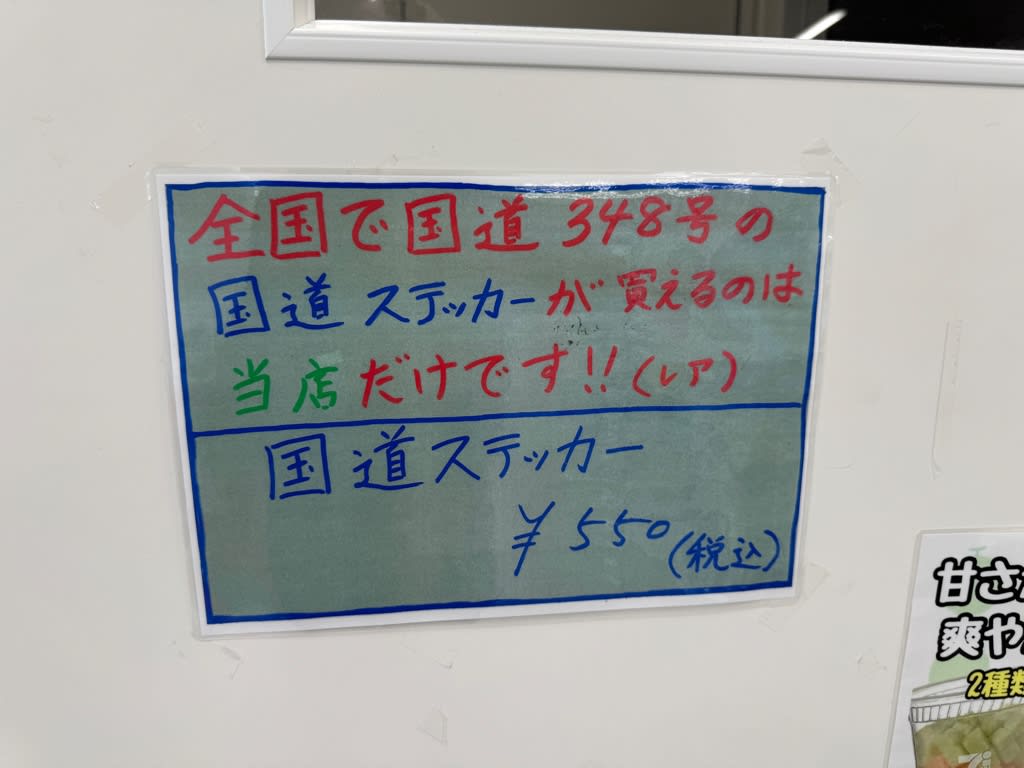 全国で国道348号の
国道ステッカーが買えるのは
当店だけです!!(レア)
国道ステッカー
￥550(税込)
甘さ
爽や
2種類